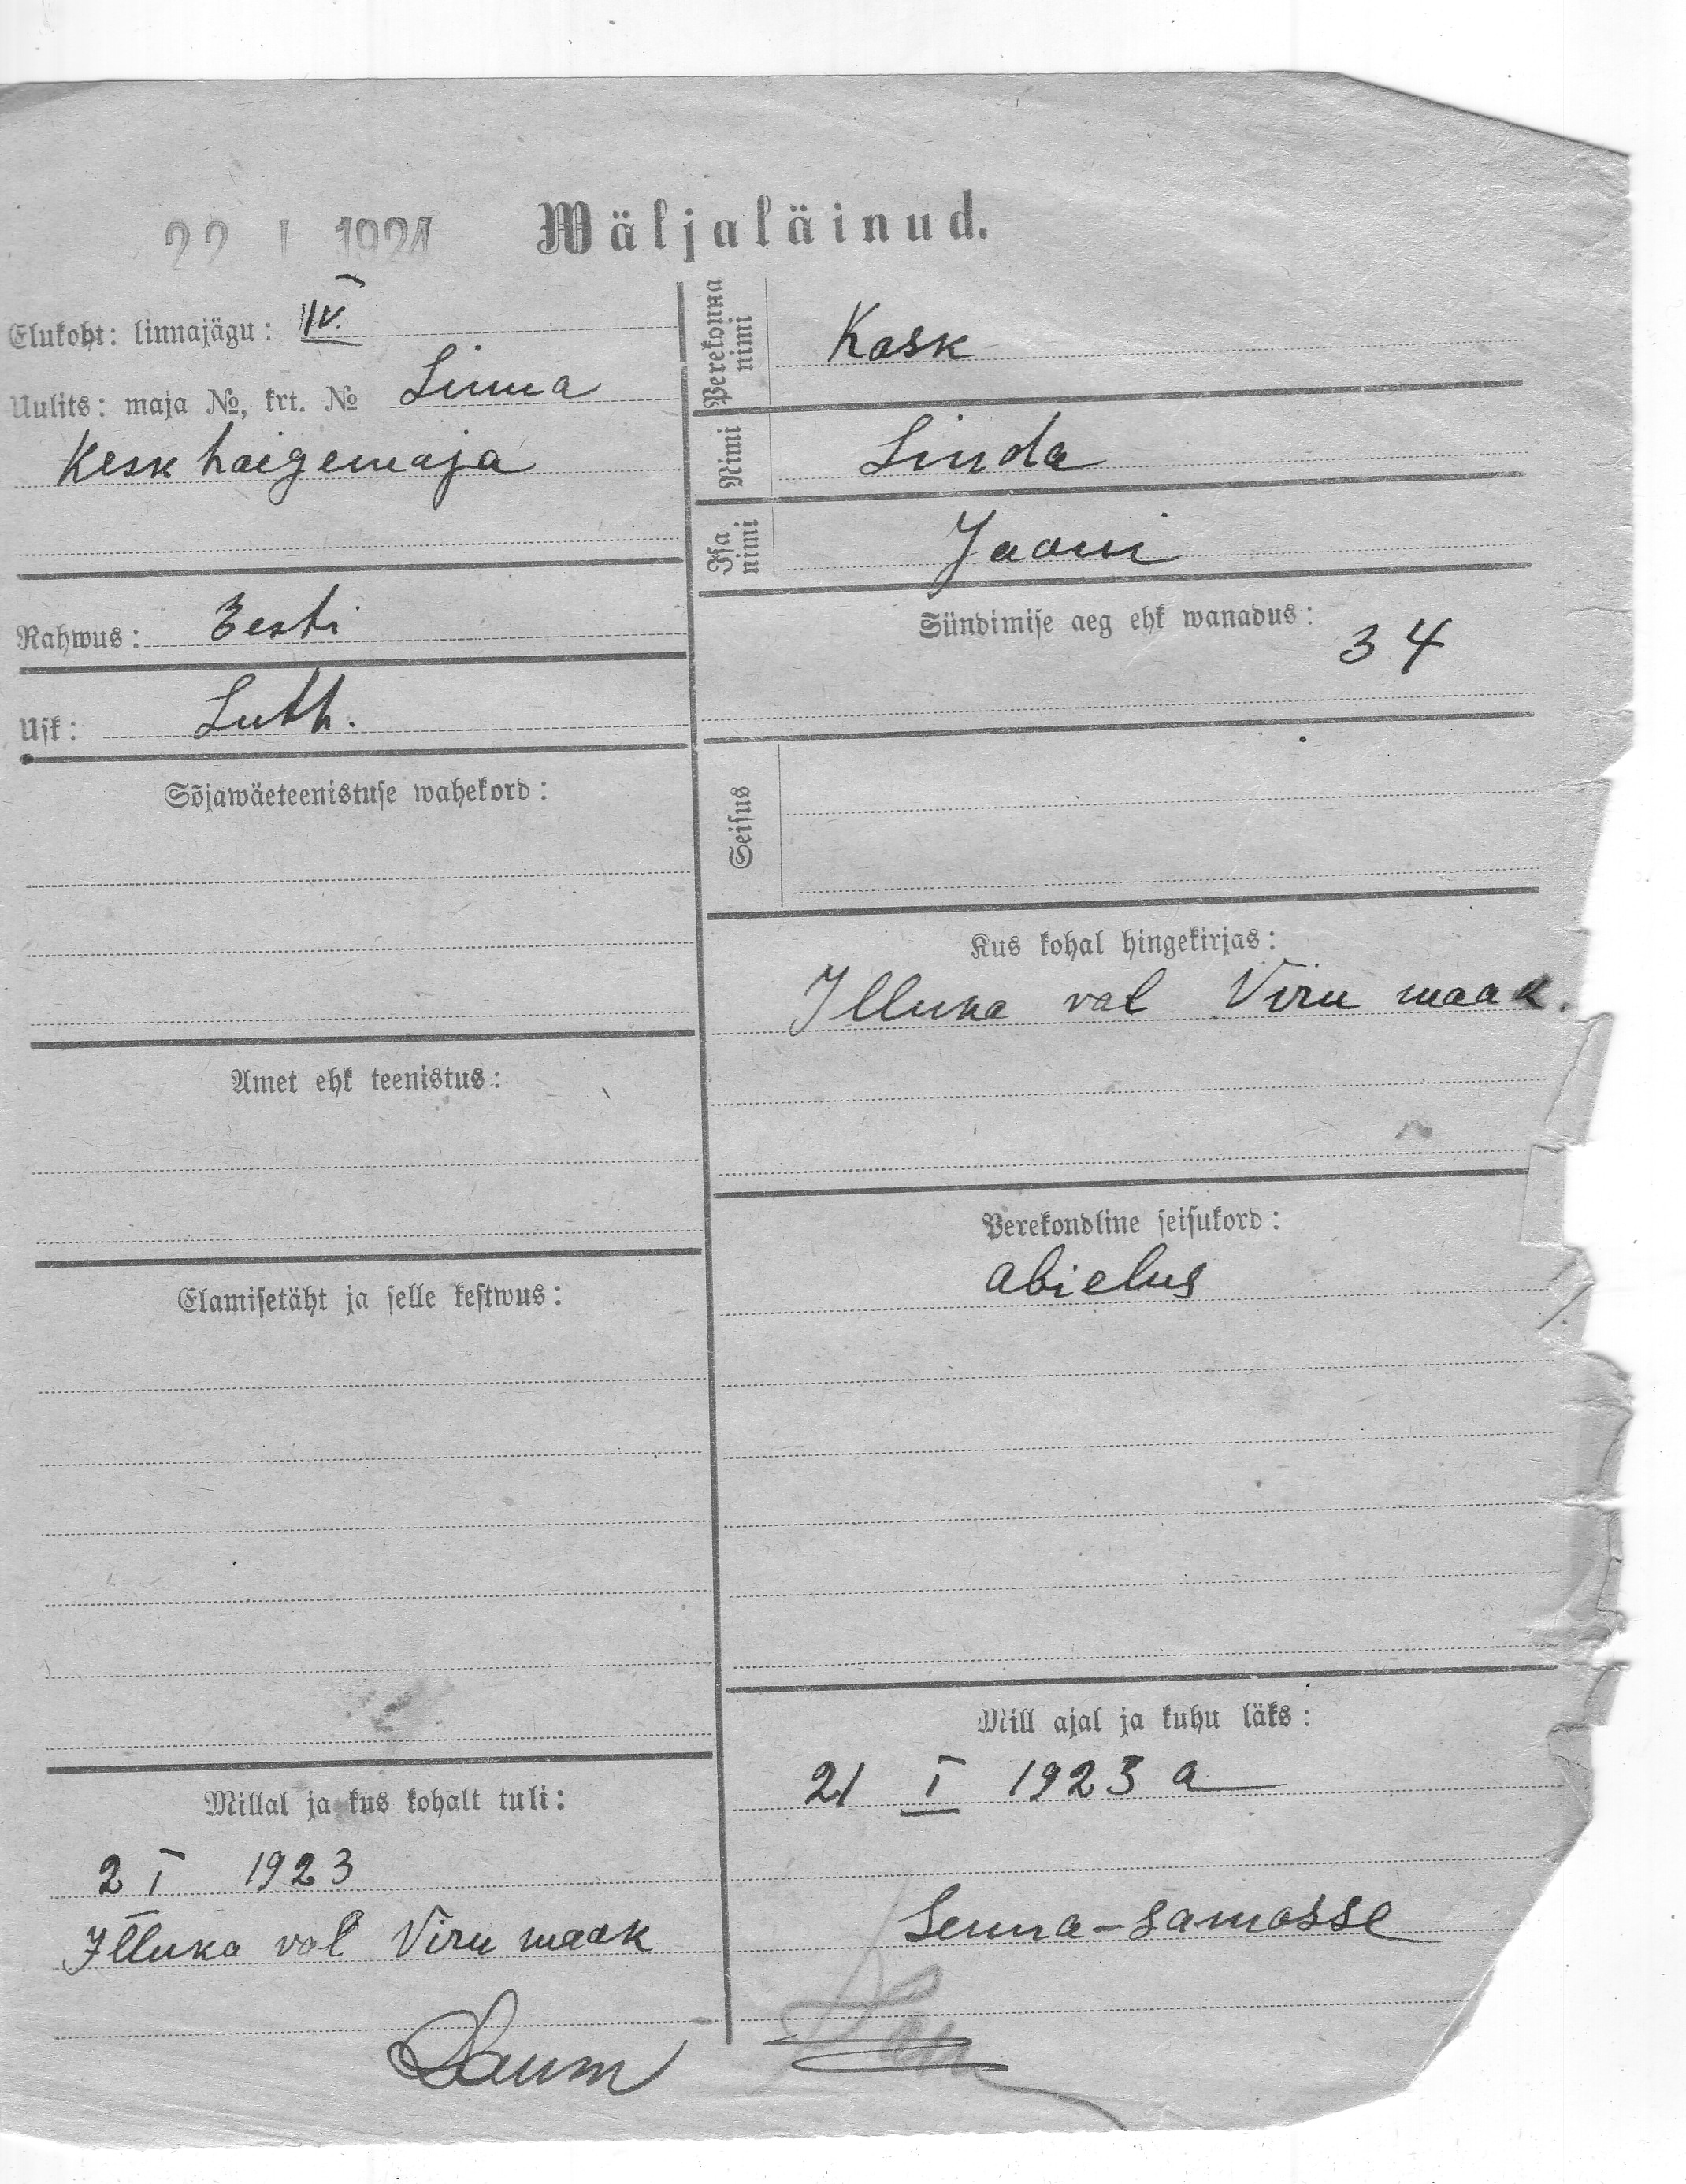 22 I 1924
Wäljaläinud.
Elukoht: linnajägu: IV.
Uulits: maja №, krt. № Linna
Kesk haigemaja
Rahwus: Eesti
Usk: Luth.
Sõjawäeteenistuse wahekord:
Amet ehk teenistus:
Elamisetäht ja selle kestwus:
Millal ja kus kohalt tuli:
2 I 1923
Illuka val Viru maak
Perekonna nimi Kask
Nimi Linda
Isa nimi Jaani
Sündimise aeg ehk wanadus:
34
Seisus
Kus kohal hingekirjas:
Illuka val Viru maak.
Perekondline seisukord:
abielus
Mill ajal ja kuhu läks:
21 I 1923 a
Senna-samasse